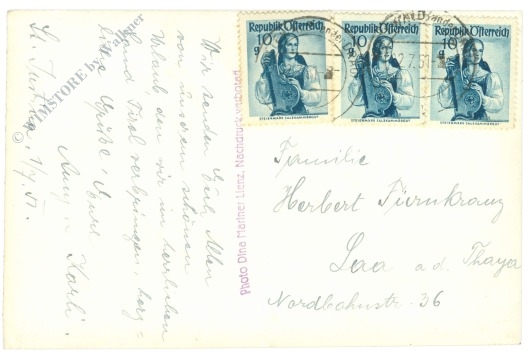 Wir senden Euch Allen
von unserem schönen
Urlaub den wir im herrlichen
Land Tirol verbringen, herz-
liche Grüße, Eure
Anny u. Karli.
St. 1/7. 51.
© HAMSTORE by Falkner
Photo Dina Mariner Lienz, Nachdruck verboten
Republik Österreich
10 g
STEIERMARK SALZKAMMERGUT
Republik Österreich
10 g
STEIERMARK SALZKAMMERGUT
Republik Österreich
10 g
STEIERMARK SALZKAMMERGUT
7.51
Familie
Herbert Fürnkranz
Laa a.d. Thaya
Nordbahnstr. 36